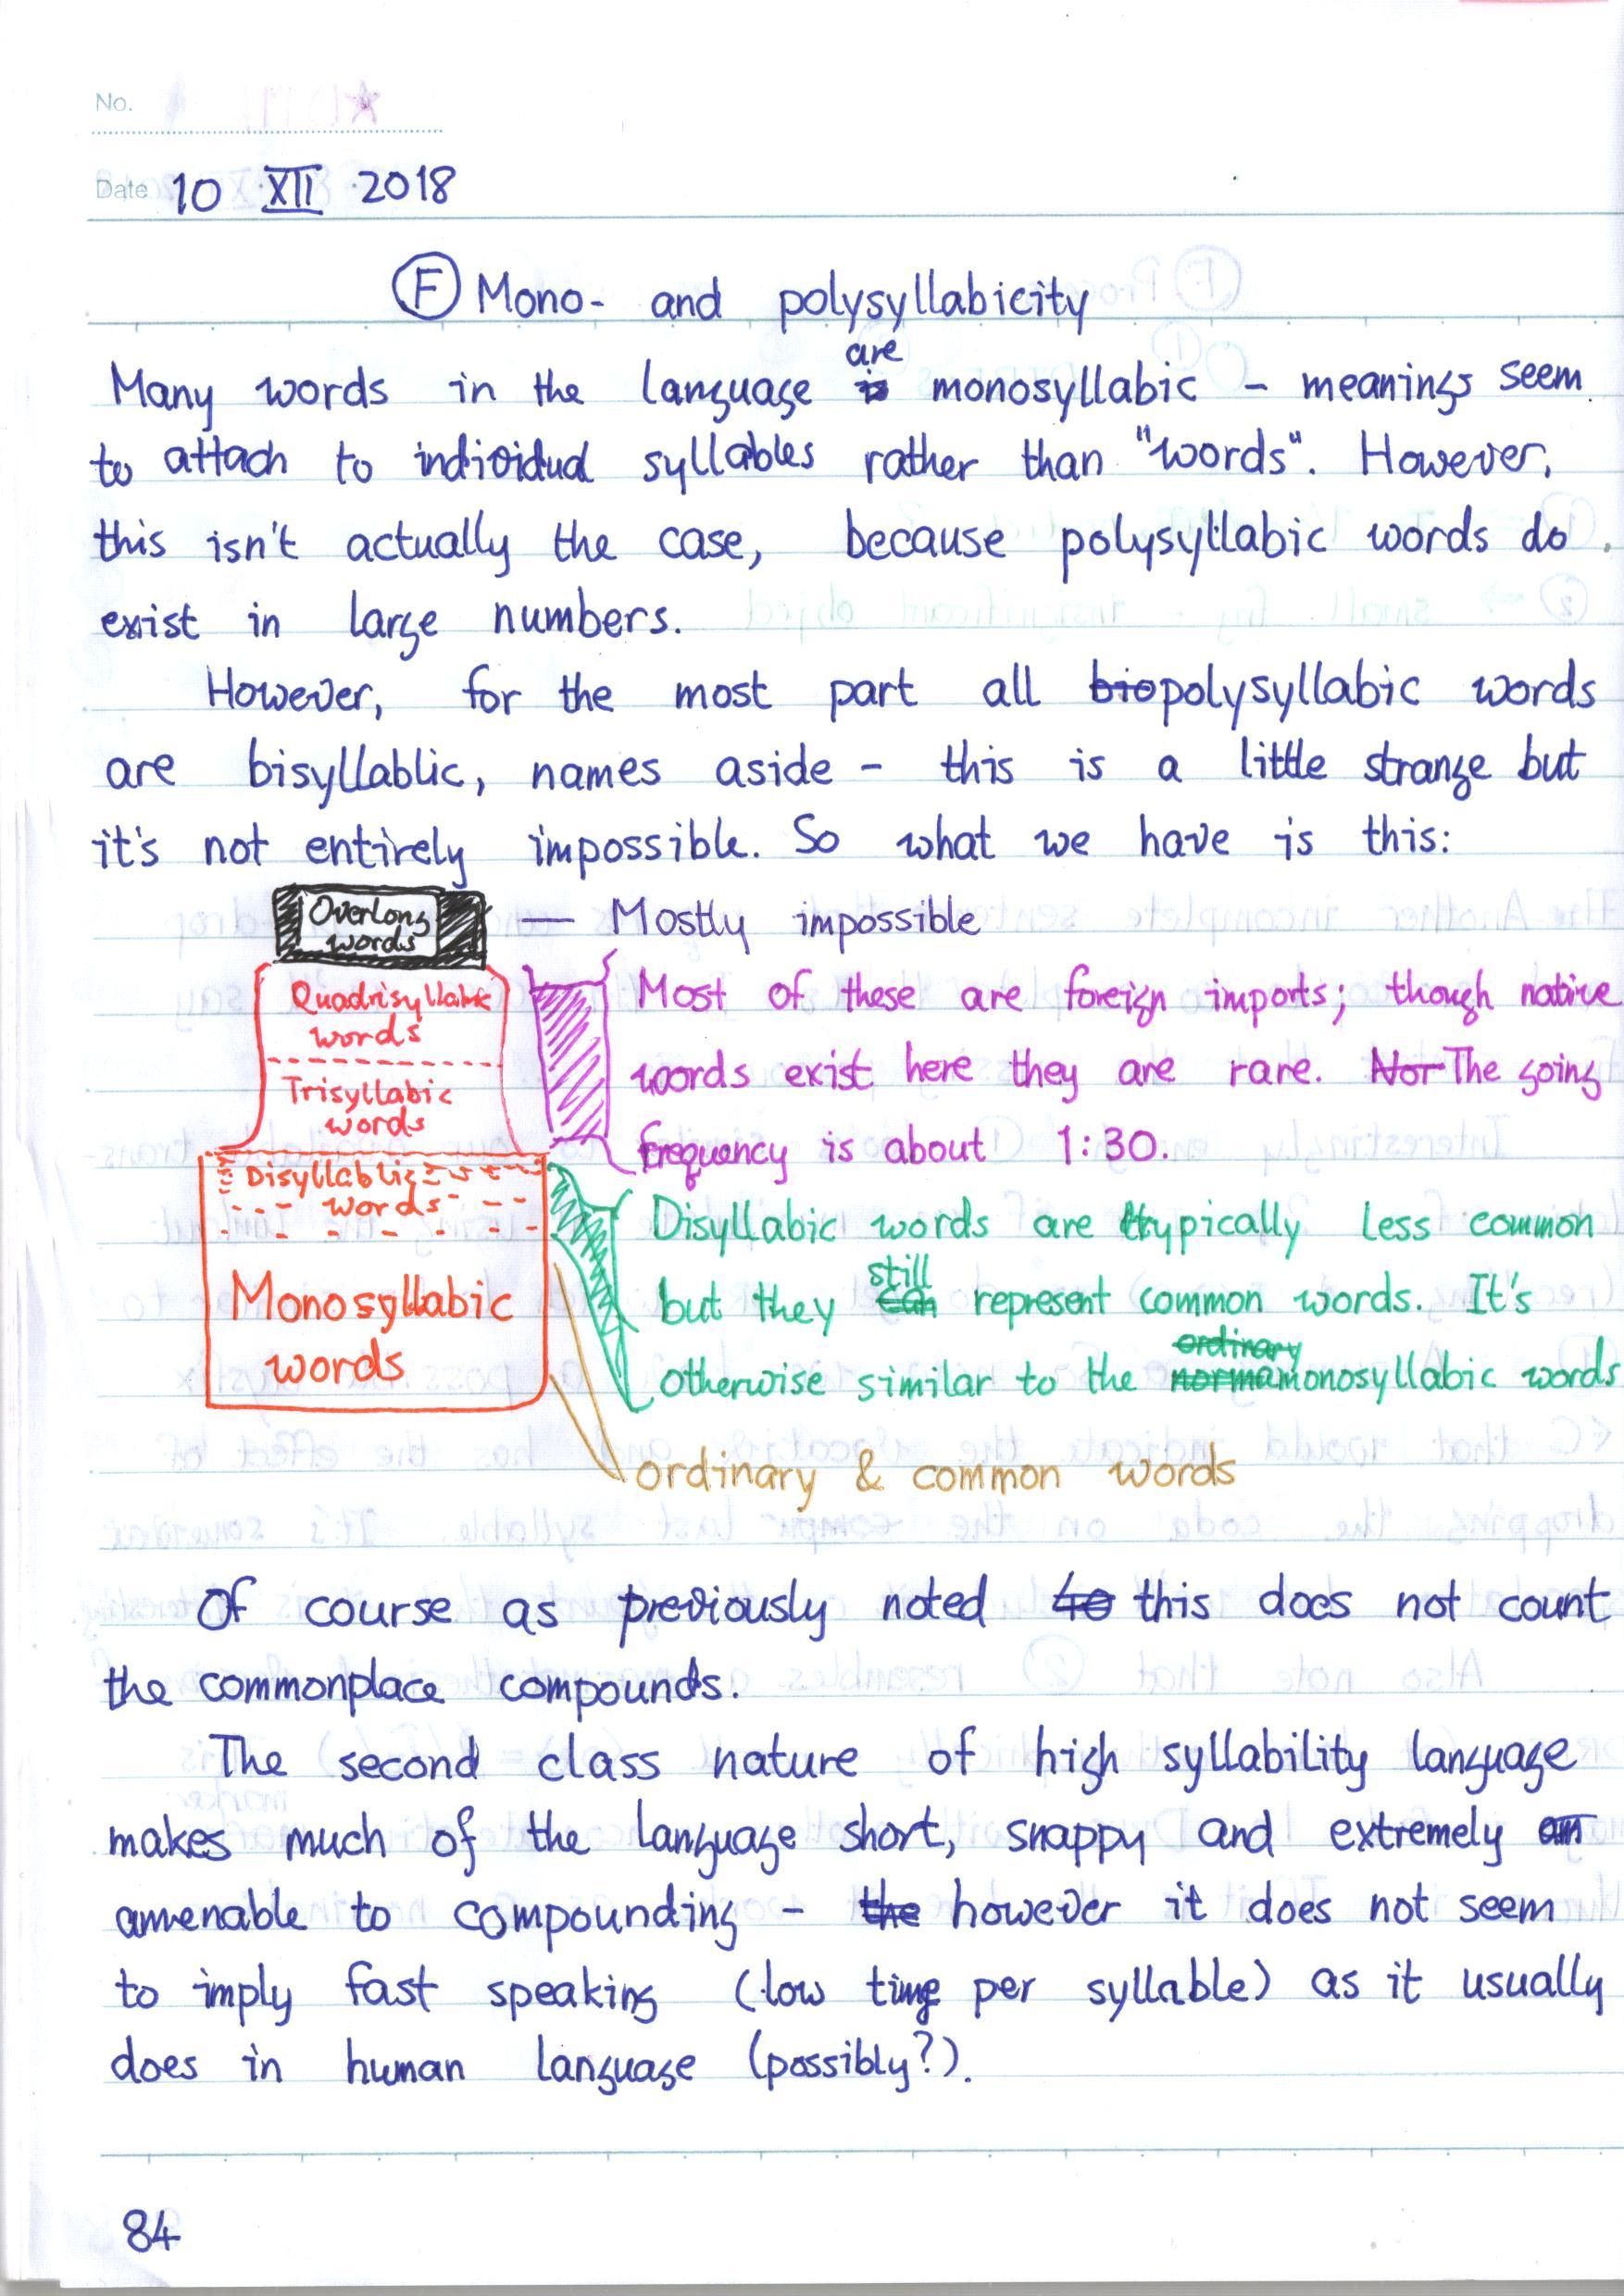 No.
Date 10 XII 2018
F Mono- and polysyllabicity
are
Many words in the language is monosyllabic - meanings seem
to attach to individual syllables rather than "words". However,
this isn't actually the case, because polysyllabic words do
exist in large numbers.
However, for the most part all bio polysyllabic words
are bisyllablic, names aside - this is a little strange but
it's not entirely impossible. So what we have is this:
Overlong
words
— Mostly impossible
Quadrisyllabic
words
Trisyllabic
words
Most of these are foreign imports; though native
words exist here they are rare. Not The going
frequency is about 1:30.
Disyllablic
words
Monosyllabic
words
Disyllabic words are typically less common
still
but they can represent common words. It's
ordinary
otherwise similar to the norma monosyllabic words
ordinary & common words
Of course as previously noted to this does not count
the commonplace compounds.
The second class nature of high syllability language
makes much of the language short, snappy and extremely am
amenable to compounding - the however it does not seem
to imply fast speaking (low time per syllable) as it usually
does in human language (possibly?).
84